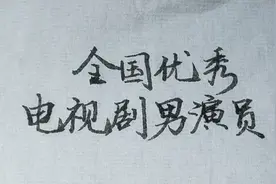 全国优秀
电视剧男演员